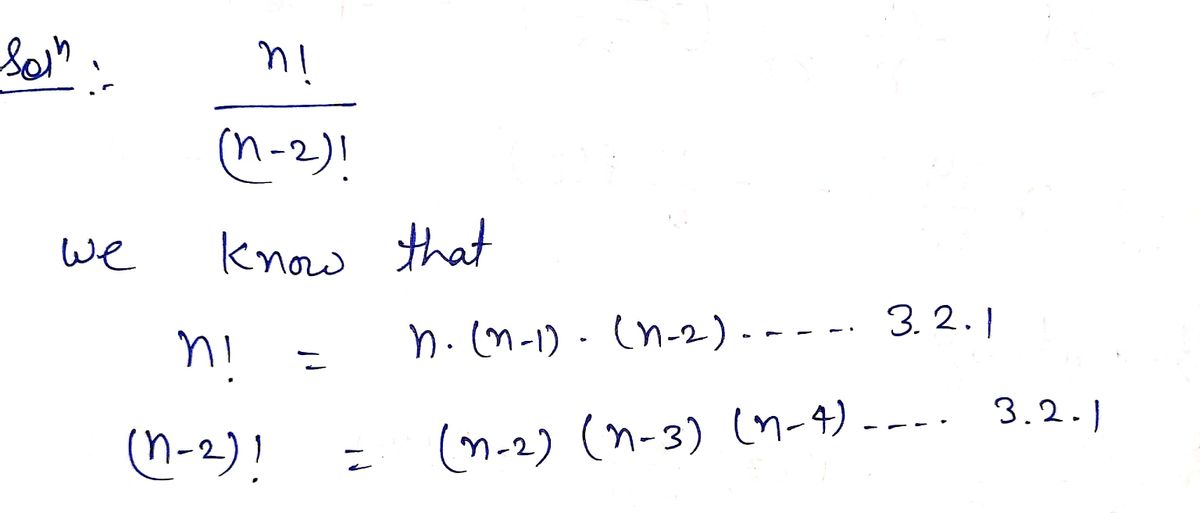 Solⁿ :-
n!
(n-2)!
we know that
n! = n. (n-1) . (n-2) . - - - -. 3. 2. 1
(n-2)! = (n-2) (n-3) (n-4) - - - -. 3. 2. 1